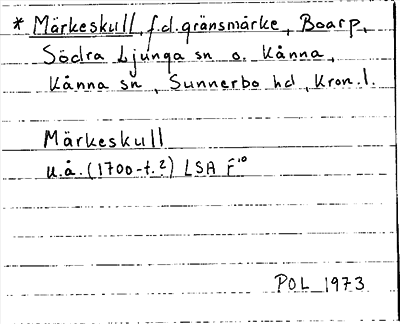 * Märkeskull, f.d. gränsmärke, Boarp,
Södra Ljunga sn o. Kånna,
Kånna sn, Sunnerbo hd, Kron.l.
Märkeskull
u.å. (1700-t.?) LSA F¹⁰
POL 1973